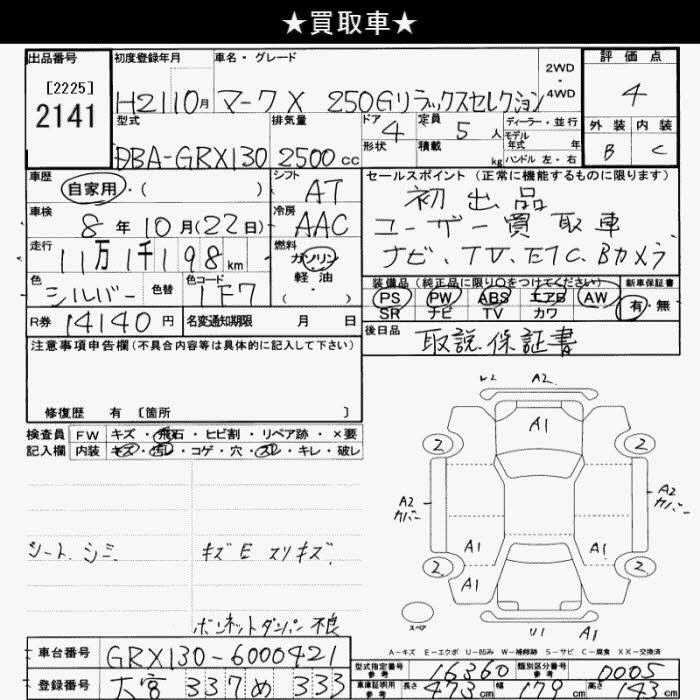 ★買取車★
出品番号 初度登録年月 車名・グレード 2WD・4WD 評価点
[2225]
2141
H21 10月 マークX 250Gリラックスセレクション 4
型式 排気量 ドア 形状 4 定員 5 人 積載 kg ディーラー・並行 モデル年式 年 ハンドル 左・右 外装 内装
DBA-GRX130 2500cc B C
車歴 自家用・( ) シフト AT セールスポイント(正常に機能するものに限ります)
車検 8年10月(22日) 冷房 AAC 初出品
ユーザー買取車
走行 11万1千198km 燃料 ガソリン・軽油・( ) ナビ、TV、ETC、Bカメラ
色 シルバー 色替 色コード 1F7
装備品(純正品に限り○をつけてください) 新車保証書
PS PW ABS エアB AW 有・無
SR ナビ TV カワ
R券 14140円 名変通知期限 月 日
後日品 取説、保証書
注意事項申告欄(不具合内容等は具体的に記入して下さい)
修復歴 有 〔箇所 〕
検査員 FW キズ・飛石・ヒビ割・リペア跡・×要
記入欄 内装 キズ・汚レ・コゲ・穴・スレ・キレ・破レ
シート シミ キズE スリキズ
ボンネットダンパー不良
W2 A2
A1
2 2
A2 カバー A2 カバー
A1 A1
2 2
A1
スペア U1 A1
A-キズ E-エクボ U-凹み W-補修跡 S-サビ C-腐食 XX-交換済
車台番号 GRX130-6000421
型式指定番号 参考 16360 類別区分番号 参考 0005
登録番号 大宮 337 め 333
車庫証明用 参考 長さ 473cm 幅 179cm 高さ 143cm